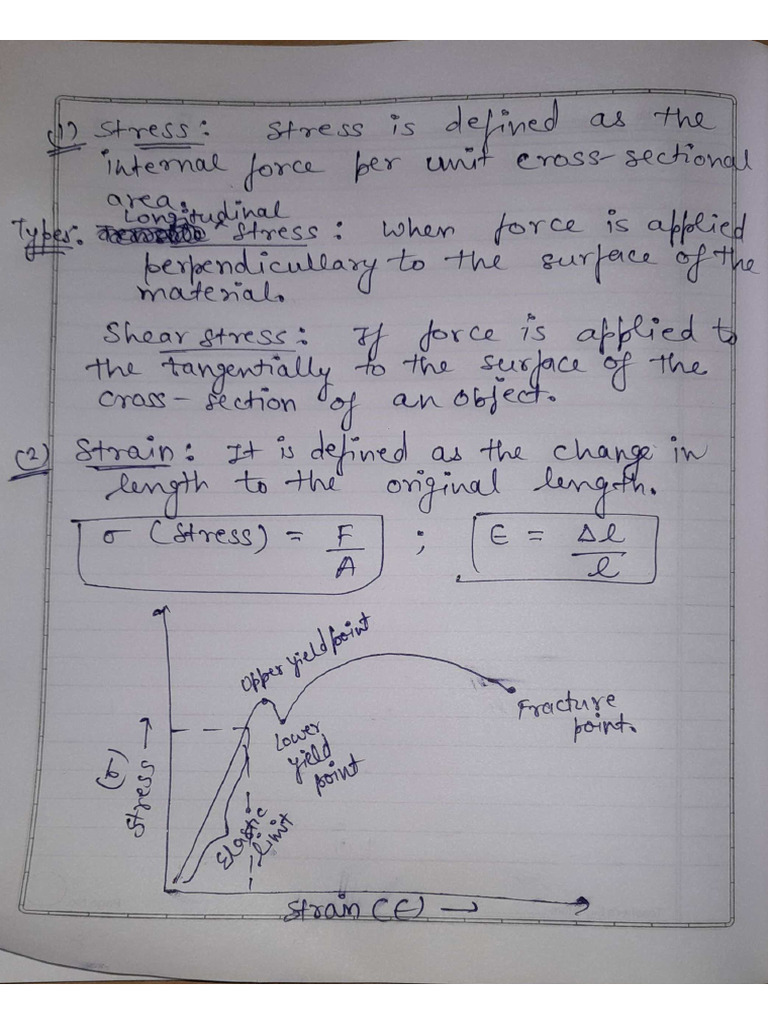 (1) Stress: Stress is defined as the
internal force per unit cross-sectional
area.
Longitudinal
Types: Stress: When force is applied
perpendicullary to the surface of the
material.
Shear stress: If force is applied to
the tangentially to the surface of the
cross-section of an object.
(2) Strain: It is defined as the change in
length to the original length.
σ (Stress) = F/A ; ε = Δl/l
Upper yield point
Lower
yield
point
Fracture
point.
Elastic
limit
(σ)
Stress →
Strain (ε) →